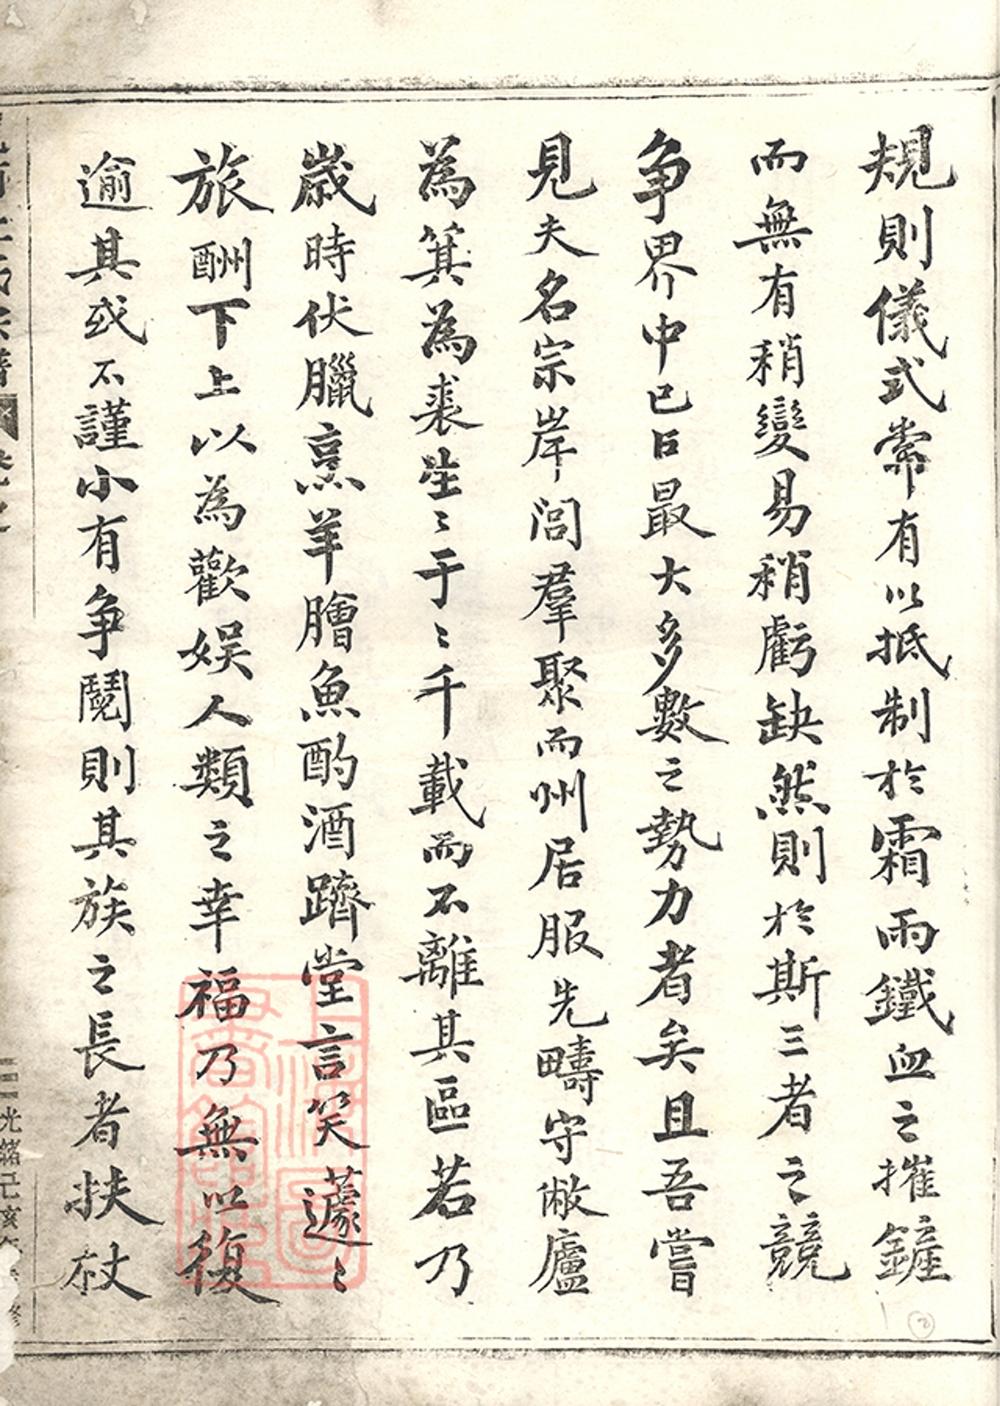 規則儀式常有以抵制於霜雨鐵血之摧鏟
而無有稍變易稍虧缺然則於斯三者之競
争界中已占最大多數之勢力者矣且吾嘗
見夫名宗岸閭羣聚而州居服先疇守敝廬
為箕為裘生〻于〻千載而不離其區若乃
歲時伏臘烹羊膾魚酌酒躋堂言笑蘧〻
旅酬下上以為歡娱人類之幸福乃無以復
逾其或不謹小有争鬮則其族之長者扶杖
光緒己亥年